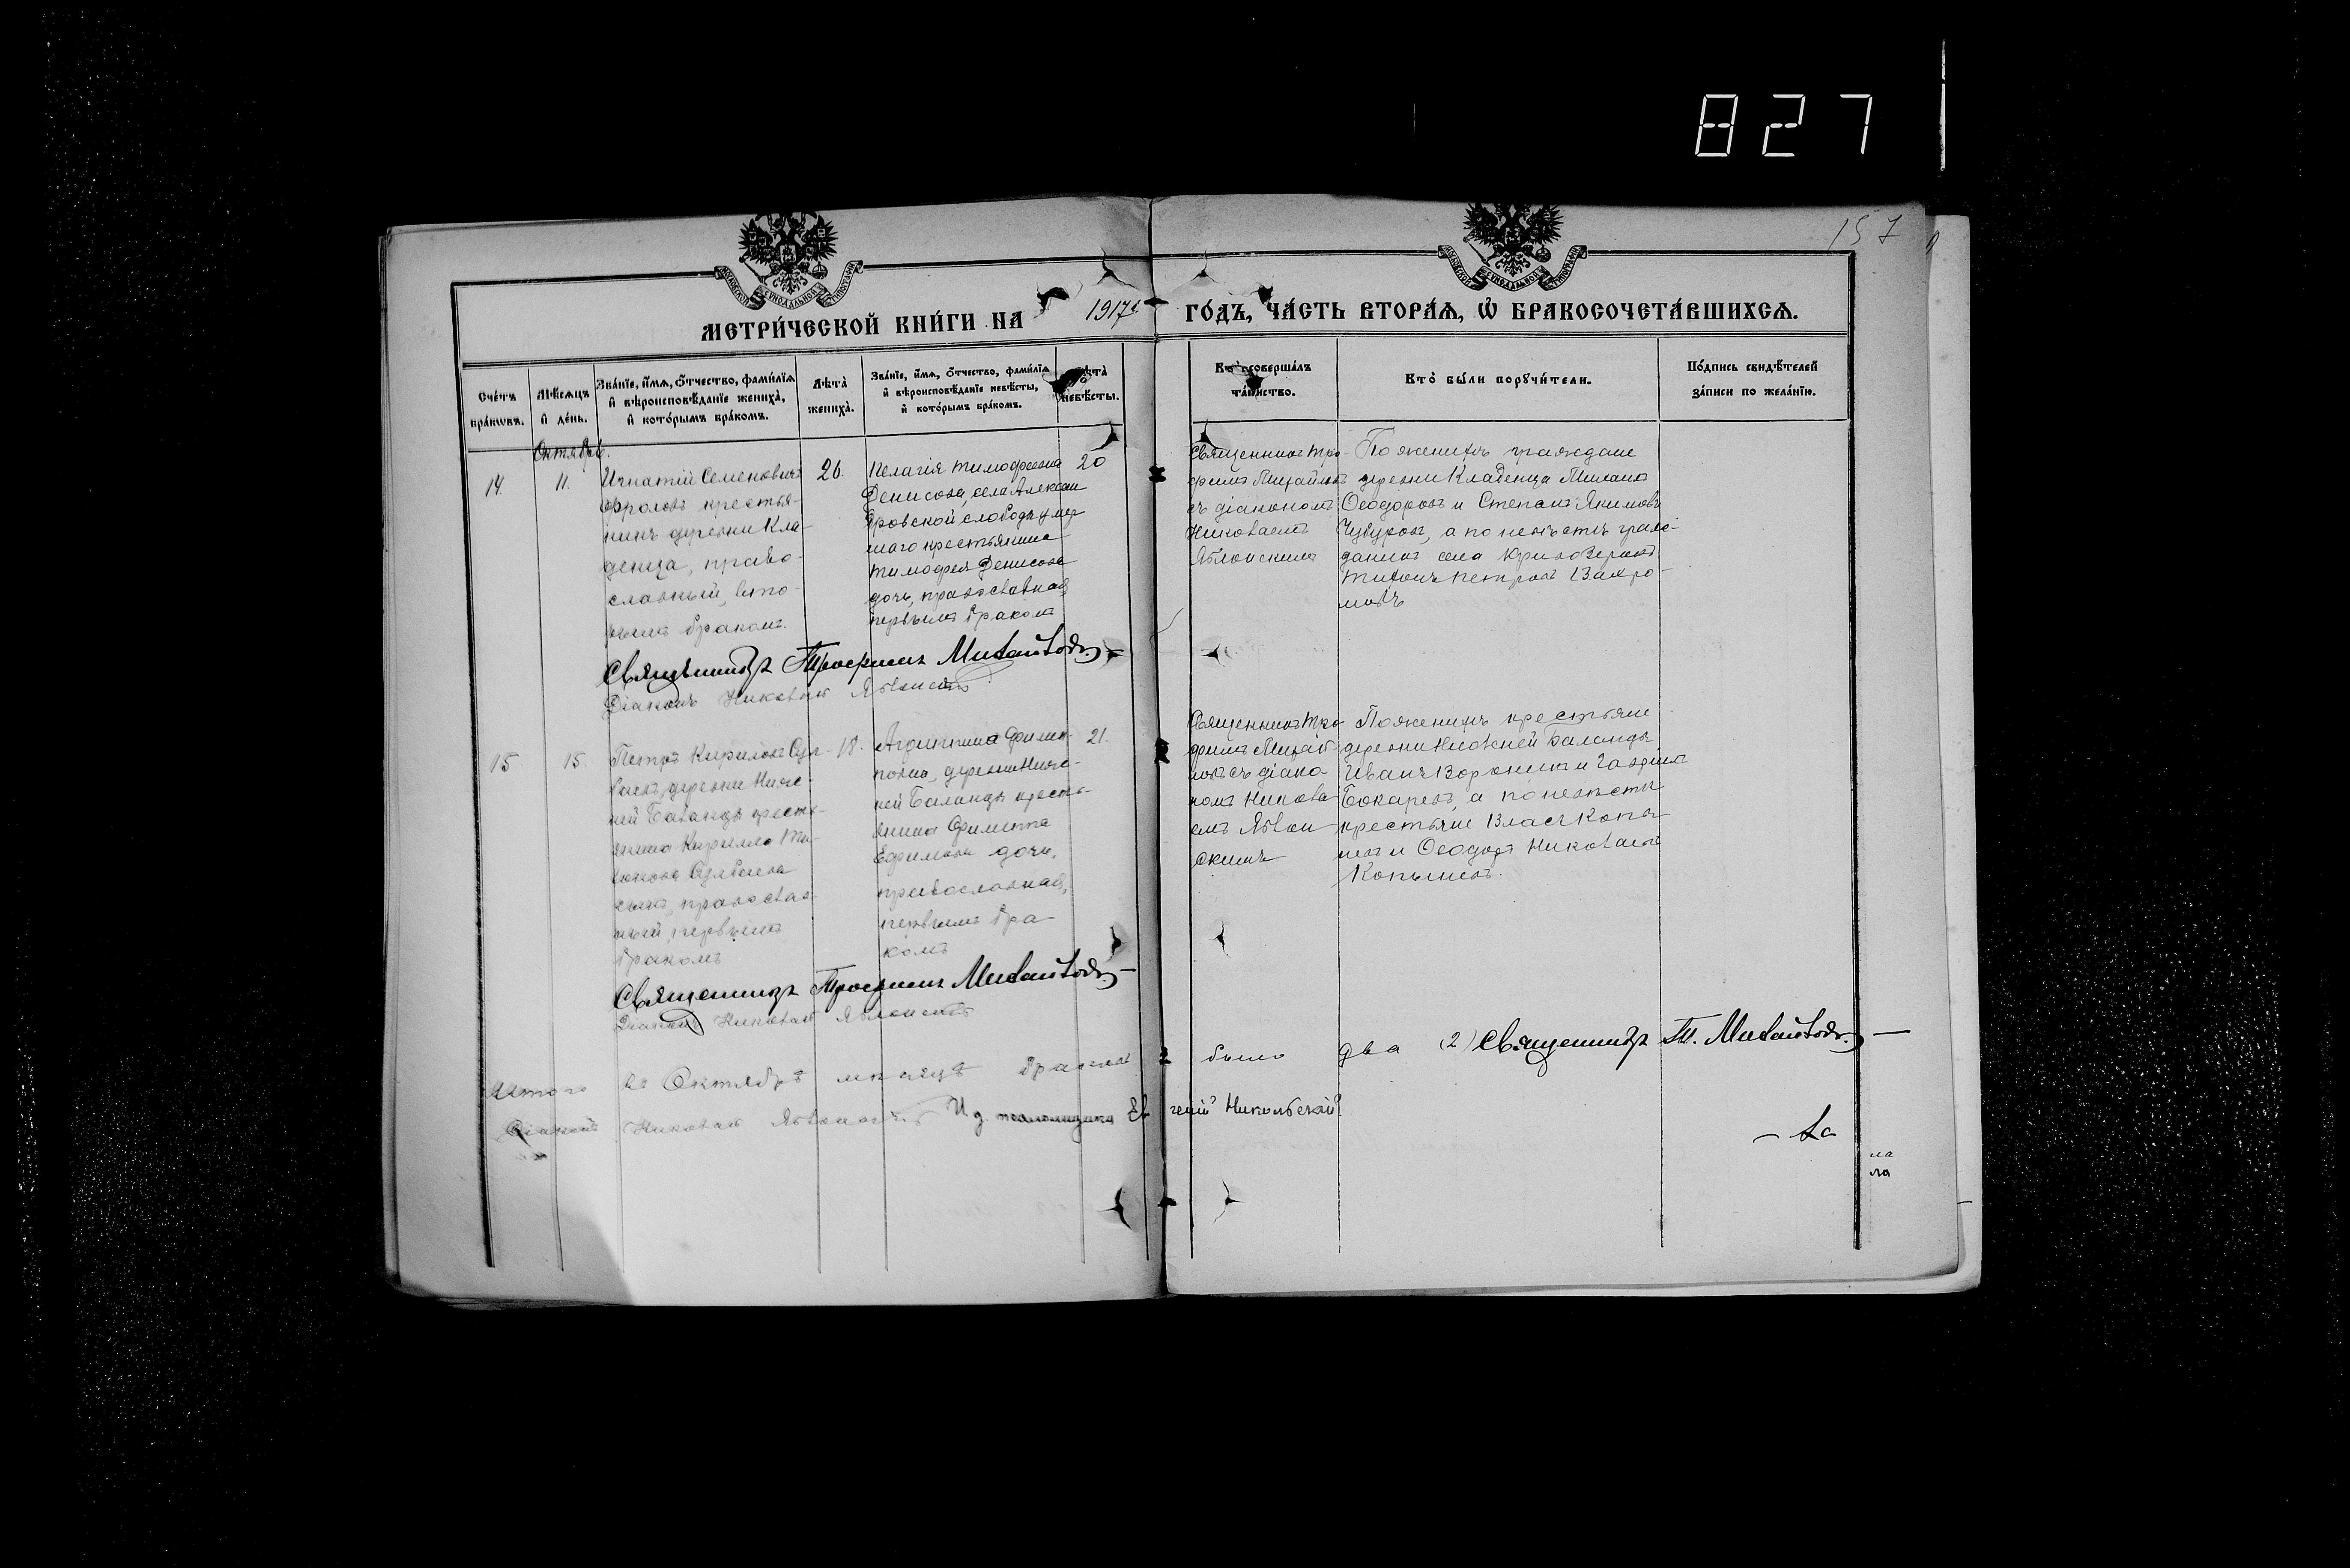 827
157
МОСКОВСКОЙ СѴНОДАЛЬНОЙ ТИПОГРАФІИ
МОСКОВСКОЙ СѴНОДАЛЬНОЙ ТИПОГРАФІИ
МЕТРИ́ЧЕСКОЙ КНИ́ГИ НА 1917 ГО́ДЪ, ЧА́СТЬ ВТОРА́Ѧ, Ѡ҆ БРАКОСОЧЕТА́ВШИХСѦ.
Сче́тъ
бра́кѡвъ.
Мѣ́сяцъ
и҆ де́нь.
Зва́нїе, и҆́мѧ, ѻ҆́тчество, фами́лїѧ
и҆ вѣроисповѣ́данїе жениха̀,
и҆ кото́рымъ бра́комъ.
Лѣта̀
жениха̀.
Зва́нїе, и҆́мѧ, ѻ҆́тчество, фами́лїѧ
и҆ вѣроисповѣ́данїе невѣ́сты,
и҆ кото́рымъ бра́комъ.
Лѣта̀
невѣ́сты.
Кто̀ соверша́лъ
та́инство.
Кто̀ бы́ли порꙋчи́тели.
По́дпись свидѣ́телей
за́писи по жела́нїю.
Октябрь.
14.
11.
Игнатій Семеновичъ
Фроловъ крестья-
нинъ деревни Кла-
денца, право-
славный, вто-
рымъ бракомъ.
26.
Пелагія Тимофеевна
Денисова, села Алексан
дровской слободы умер
шаго крестьянина
Тимофея Денисова
дочь, православная,
первымъ бракомъ
20
Священникъ Тро-
фимъ Михайловъ
съ діакономъ
Николаемъ
Яблонскимъ
По женихѣ граждане
деревни Кладенца
Ѳеодоровъ и Степанъ Якимовъ
а по невѣстѣ граж-
данинъ села
Петровъ Вахро-
мовъ
Священникъ Трофимъ Михайловъ
Діаконъ Николай Яблонскій
15
15.
Петръ Кириловъ
деревни Ниж-
ней Баланды кресть-
янина Кирилла
сынъ, православ
ный, первымъ
бракомъ
18.
Агриппина Филип-
пова, деревни Ниж-
ней Баланды кресть-
янина Филиппа
Ефимова дочь,
православная,
первымъ бра-
комъ
21.
Священникъ Тро
фимъ Михай
ловъ съ діако-
номъ Никола-
емъ Яблон
скимъ
По женихѣ крестьяне
деревни Нижней Баланды
Иванъ Воронинъ и Гавріилъ
Бокаревъ, а по невѣстѣ
крестьяне Власъ Копы
и Ѳеодоръ Николаевъ
Священникъ Трофимъ Михайловъ
Діаконъ Николай Яблонскій
Итого въ Октябрѣ мѣсяцѣ браковъ было два (2) Священникъ Т. Михайловъ
Діаконъ Николай Яблонскій И. д. псаломщика Евгеній Никольскій